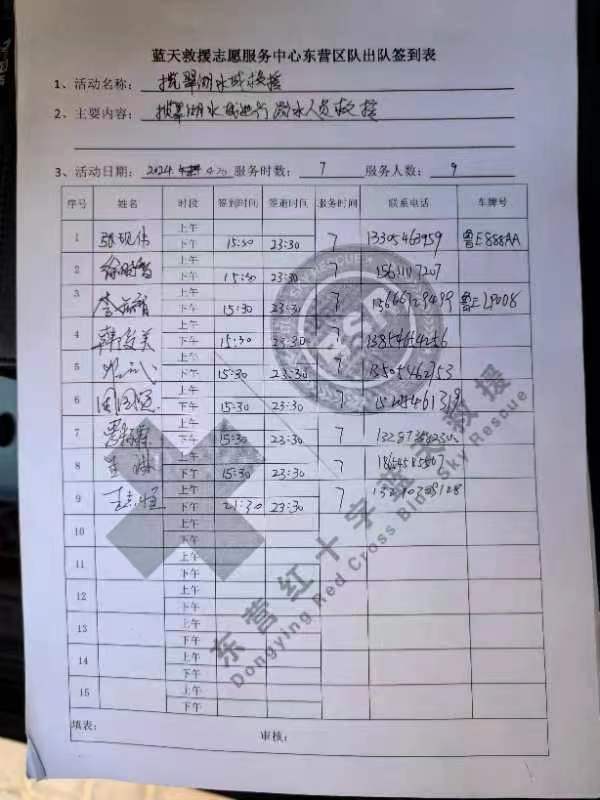 蓝天救援志愿服务中心东营区队出队签到表
1、活动名称： 揽翠湖水域救援
2、主要内容： 揽翠湖水域进行溺水人员救援
3、活动日期： 2024. 4.20 服务时数： 7 服务人数： 9
序号 姓名 时段 签到时间 签退时间 服务时间 联系电话 车牌号
上午
1 张现伟 下午 15:30 23:30 7 13305463959 鲁E888AA
上午
2 下午 15:30 23:30 7
上午
3 下午 15:30 23:30 7
上午
4 韩俊美 下午 15:30 23:30 7 13854654256
上午
5 下午 15:30 23:30 7 13505462153
上午
6 下午 15:30 23:30 7
上午
7 下午 15:30 23:30 7
上午
8 下午 15:30 23:30 7
上午
9 下午 21:30 23:30 7
上午
10 下午
上午
11 下午
上午
12 下午
上午
13 下午
上午
14 下午
上午
15 下午
填表： 审核：
东营红十字蓝天救援
Dongying Red Cross Blue Sky Rescue